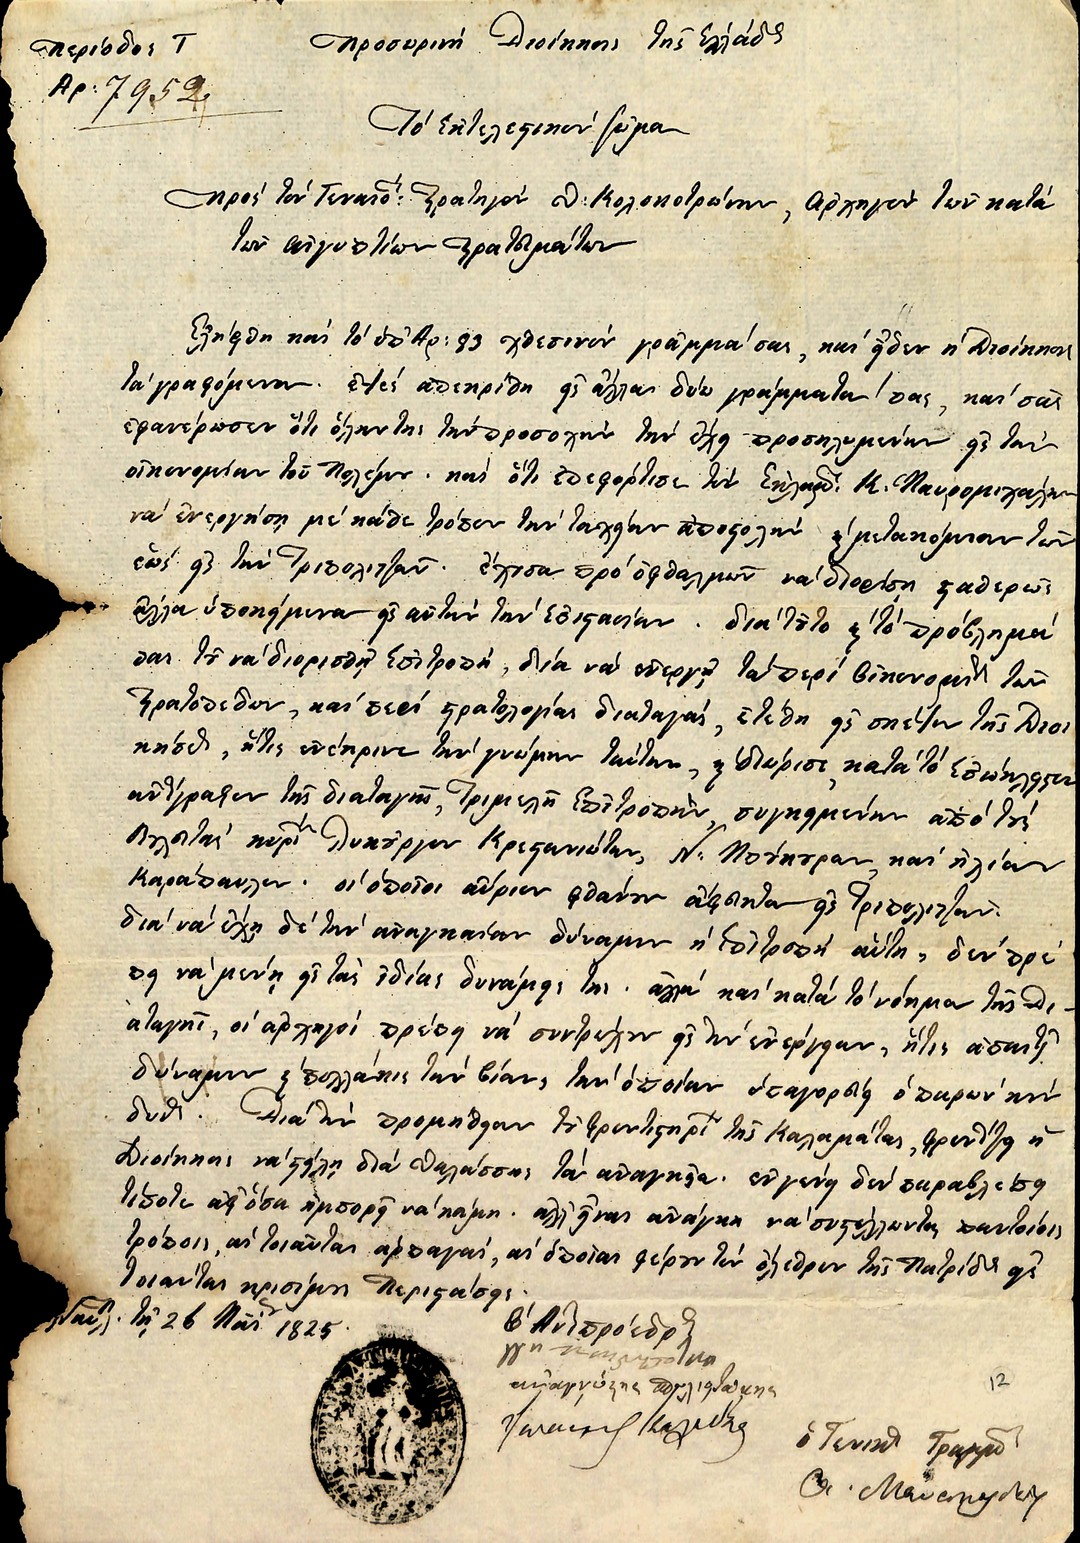 Περίοδος Γ
Προσωρινή Διοίκησις της Ελλάδος
Αρ: 7952
Το Εκτελεστικόν Σώμα
Προς τον Γενναιότ: Στρατηγόν Θ: Κολοκοτρώνην, αρχηγόν των κατά
των αιγυπτίων στρατευμάτων
Ελήφθη και το υπ' Αρ: 93 χθεσινόν γράμμα σας, και είδεν η Διοίκησις
τα γραφόμενα. εχθές απεκρίθη εις άλλα δύω γράμματά σας, και σας
εφανέρωσεν ότι όλην της την προσοχήν την έχει προσηλωμένην εις την
οικονομίαν του πολέμου. και ότι επεφόρτισε τον Εκλαμπ: Κ. Μαυρομιχάλην
να ενεργήση με κάθε τρόπον την ταχείαν αποστολήν και μετακόμισιν των
εις την Τριπολιτζάν. έχουσα προ οφθαλμών να διορίση σταθερώς
άλλα υποκείμενα εις αυτήν την επιστασίαν. δια τούτο και το πρόβλημά
σας του να διορισθή επιτροπή, δια να ενεργή τα περί οικονομίας των
στρατοπέδων, και περί στρατολογίας διαταγάς, ετέθη εις σκέψιν της Διοι
κήσεως, ήτις ενέκρινε την γνώμην ταύτην, και εδιώρισε, κατά το εσώκλειστον
αντίγραφον της διαταγής, Τριμελή Επιτροπήν, συγκειμένην από τους
Βουλευτάς κυρίους Λυκούργον Κρεστενίτην, Ν. Μπούκουραν, και Ηλίαν
Καράπαυλον. οι οποίοι αύριον φθάνουν άφευκτα εις Τριπολιτζάν.
δια να έχη δε την αναγκαίαν δύναμιν η επιτροπή αύτη, δεν πρέ
πει να μείνη εις τας ιδίας δυνάμεις της. αλλά και κατά το νόημα της δι-
αταγής, οι αρχηγοί πρέπει να συντρέχουν εις την ενέργειαν, ήτις απαιτεί
δύναμιν και πολλάκις την βίαν, την οποίαν υπαγορεύει ο παρών κίν
δυνος. Δια την προμήθειαν του φροντιστηρίου της Καλαμάτας, φροντίζει η
Διοίκησις να στείλη δια θαλάσσης τα αναγκαία. εν γένει δεν παραβλέπει
τίποτε αφ' όσα ημπορεί να κάμη. αλλ' είναι ανάγκη να συστέλλωνται παντοίοις
τρόποις, αι τοιαύται αρπαγαί, αι οποίαι φέρουν τον όλεθρον της Πατρίδος εις
τοιαύτας κρισίμους περιστάσεις.
τη 26 Μαΐου 1825.
Ο Αντιπρόεδρος
αναγνώστης σπηλιωτάκης
Ιωάννης Κωλέττης
12
ο Γενικός Γραμματεύς
Α. Μαυροκορδάτος